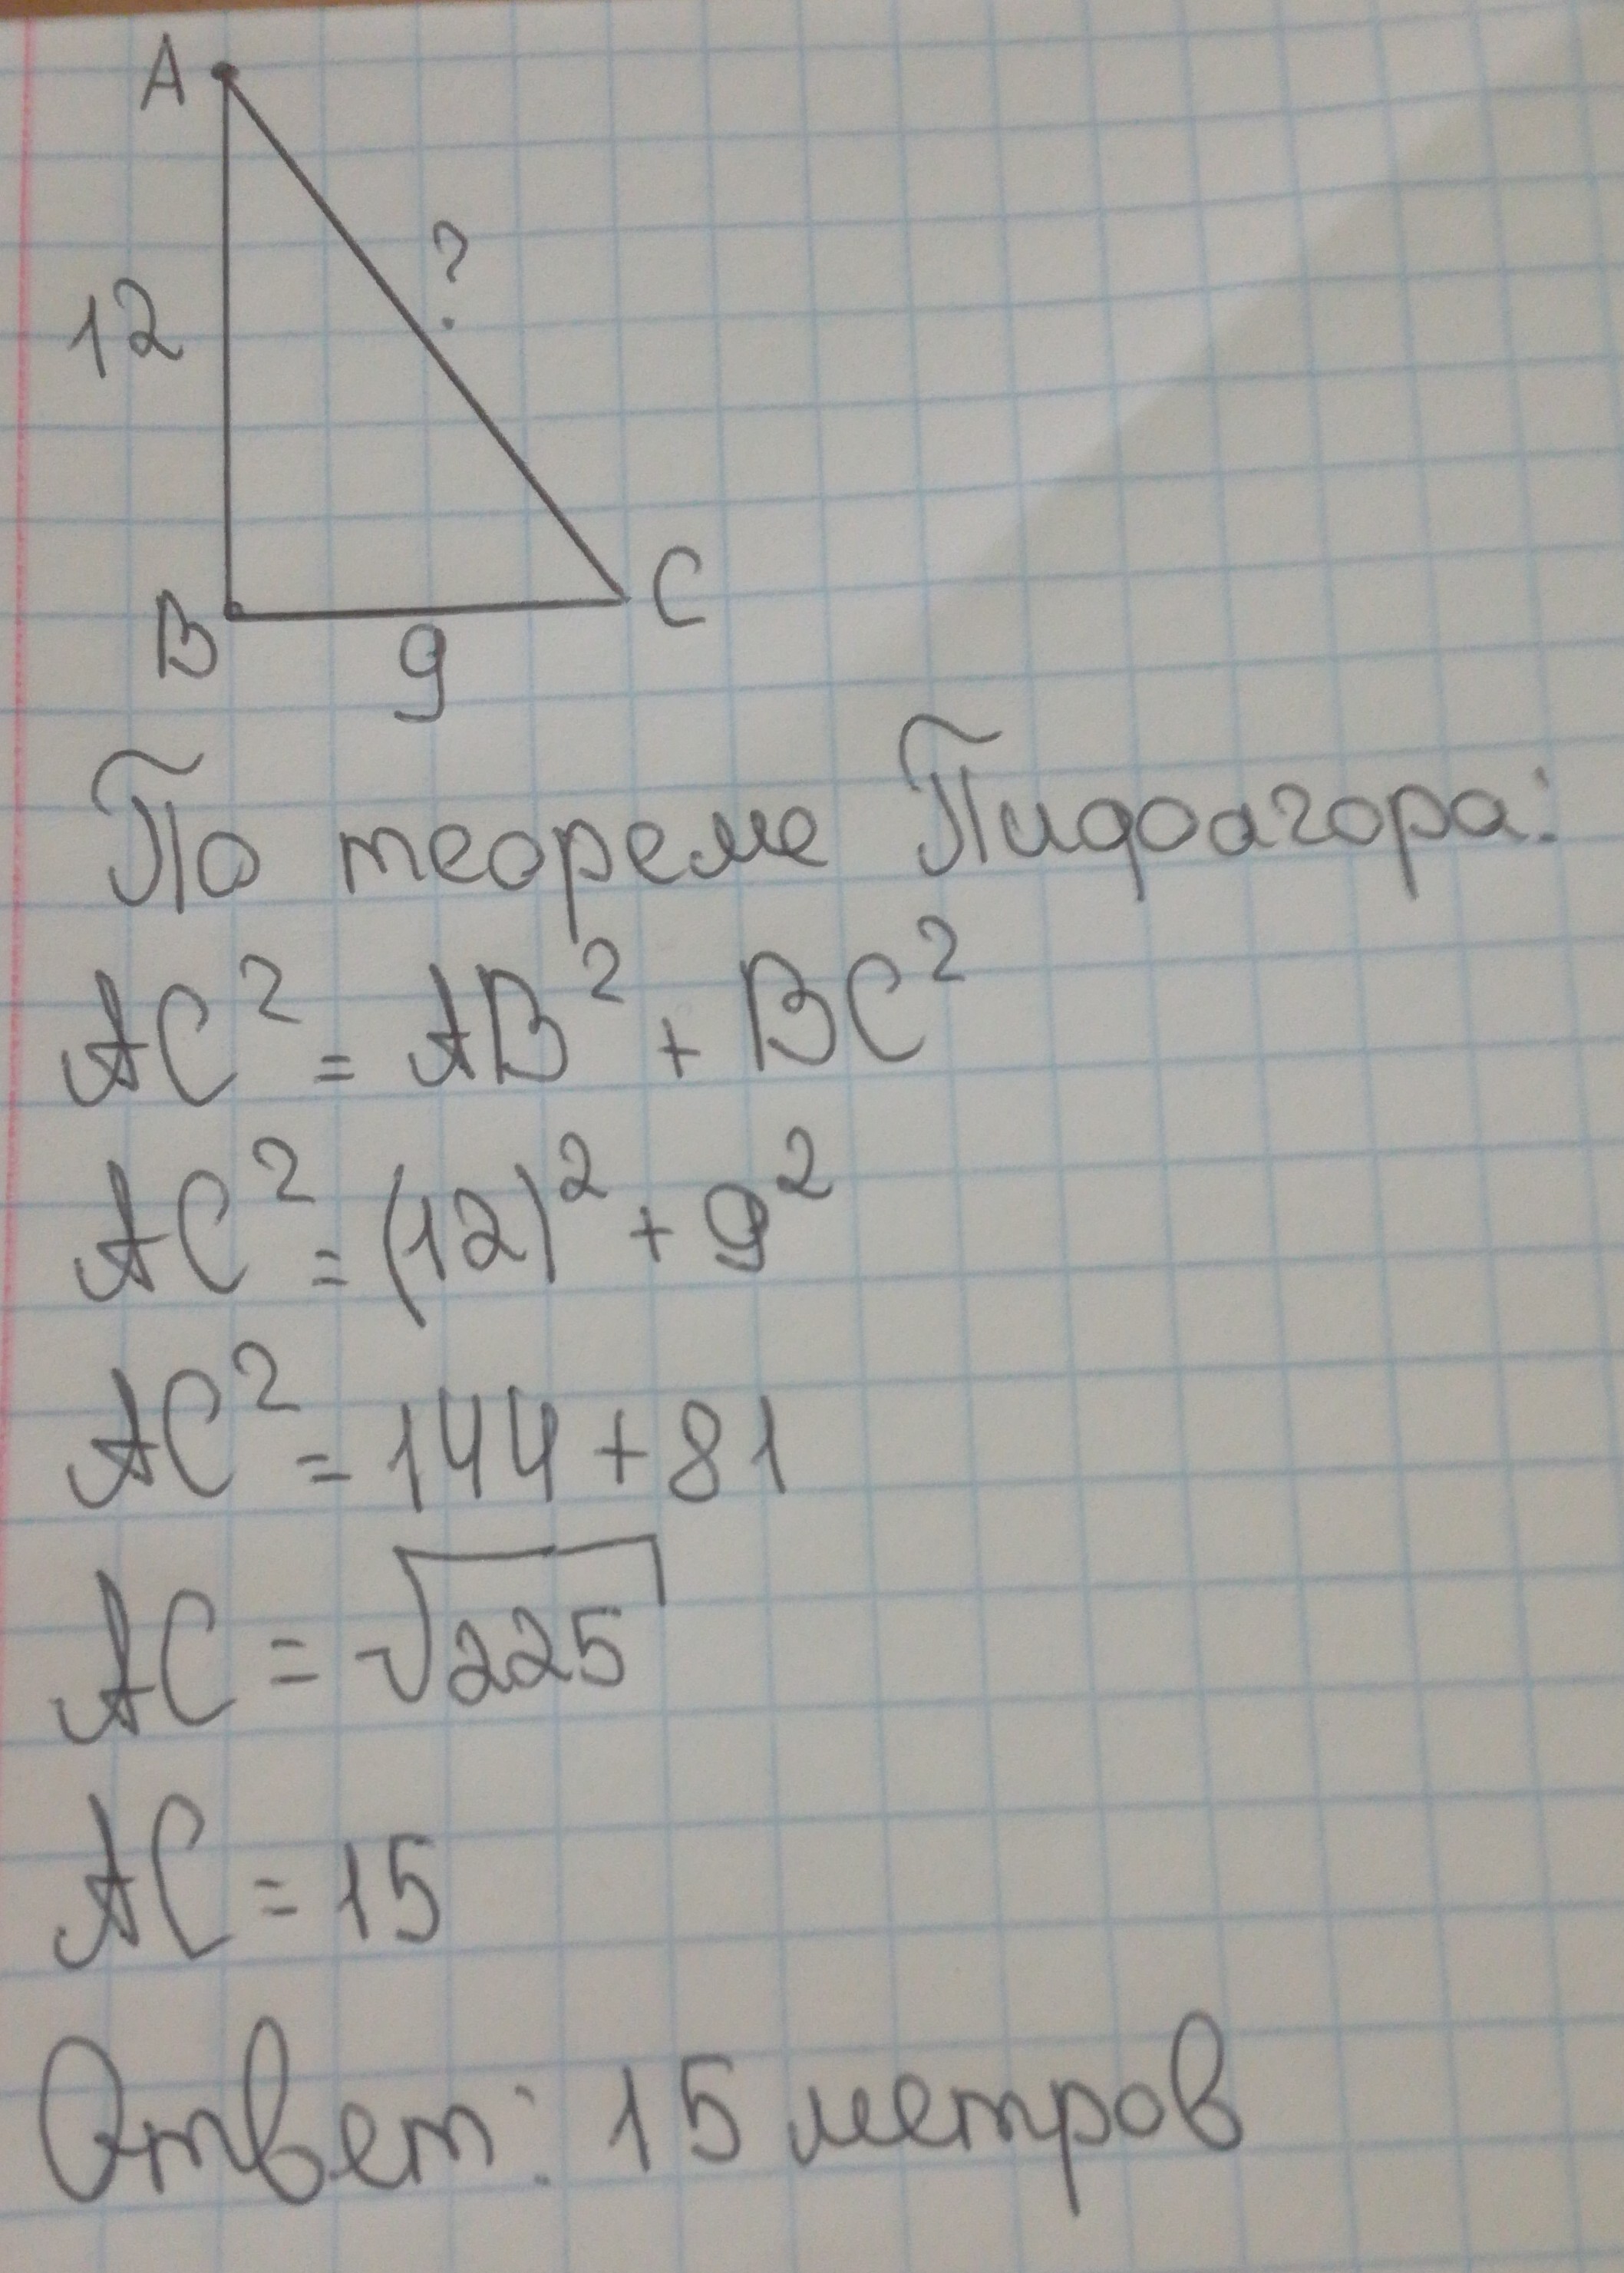 A
?
12
B
C
9
По теореме Пифагора:
AC² = AB² + BC²
AC² = (12)² + 9²
AC² = 144 + 81
AC = √225
AC = 15
Ответ: 15 метров